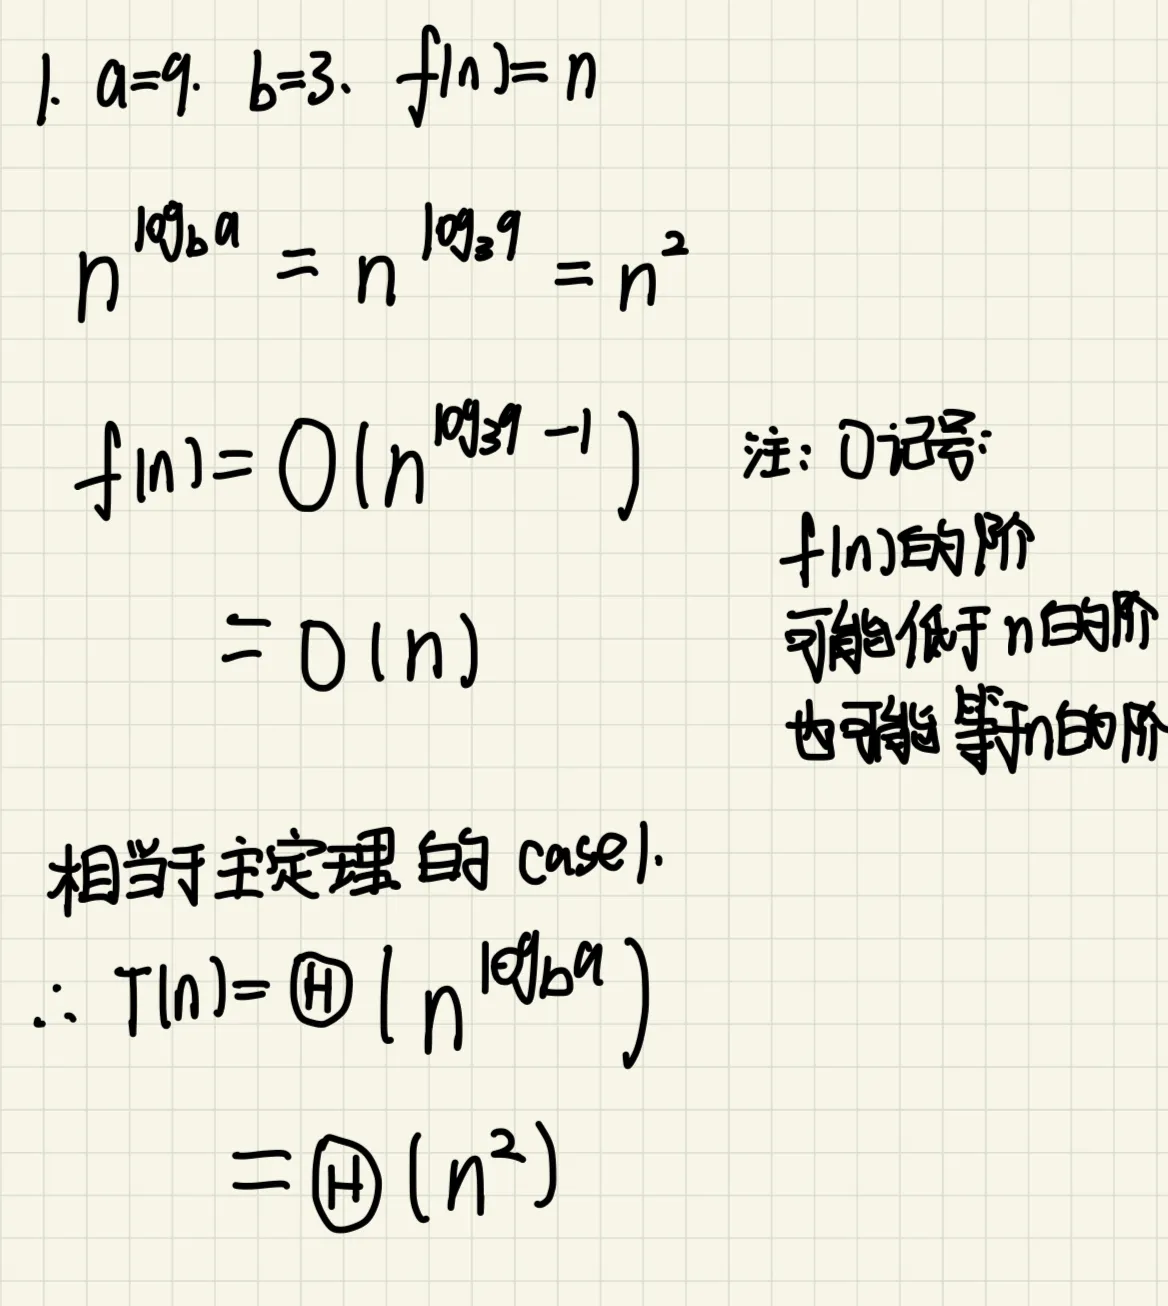 1. a=9. b=3. f(n)=n
n^{log_b a} = n^{log_3 9} = n^2
f(n)=O(n^{log_3 9 -1})
=O(n)
注: O记号:
f(n)的阶
可能低于n的阶
也可能等于n的阶
相当于主定理的case1.
∴ T(n)=Θ(n^{log_b a})
=Θ(n^2)